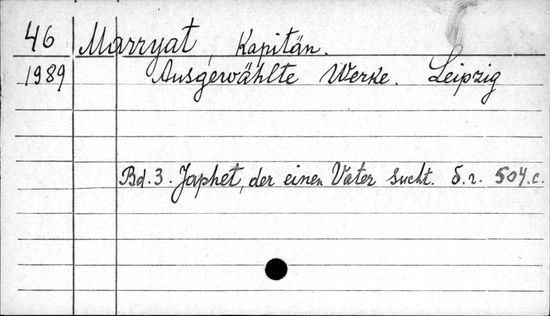 46 Marryat, Kapitän.
1989 Ausgewählte Werke. Leipzig
Bd. 3. Japhet, der einen Vater sucht. б.г. 504.c.